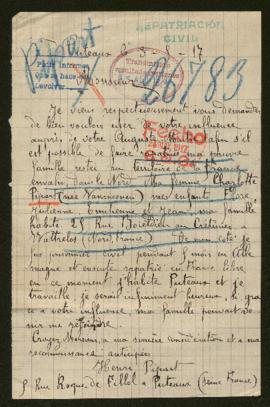 REPATRIACIÓN
CIVIL
Pipart
Puteaux le 5 - 17
86783
Monsieur
Je viens respectueusement vous demander
de bien vouloir user de votre influence
auprès de votre Auguste afin s'il
est possible de faire ma pauvre
famille restée au territoire de la France
envahi, dans le Nord. Ma femme, Charlotte
Pipart (née Vansteenen) mes enfants, Flore,
Julienne Emilienne et Jean, ma famille
habite 25 Rue au Crétinier à
Wattrelos (Nord, France) De mon côté je
fus prisonnier civil pendant 9 mois en Alle
magne et ensuite rapatrié en France libre
en ce moment j'habite Puteaux et je
travaille, je serai infiniment heureux, si grâ
ce à votre influence, ma famille pouvait ve
nir me rejoindre
Croyez Monsieur, à ma sincère considération et à ma
reconnaissance anticipées
Henri Pipart
9 Rue Roque de Fillol à Puteaux (Seine France)